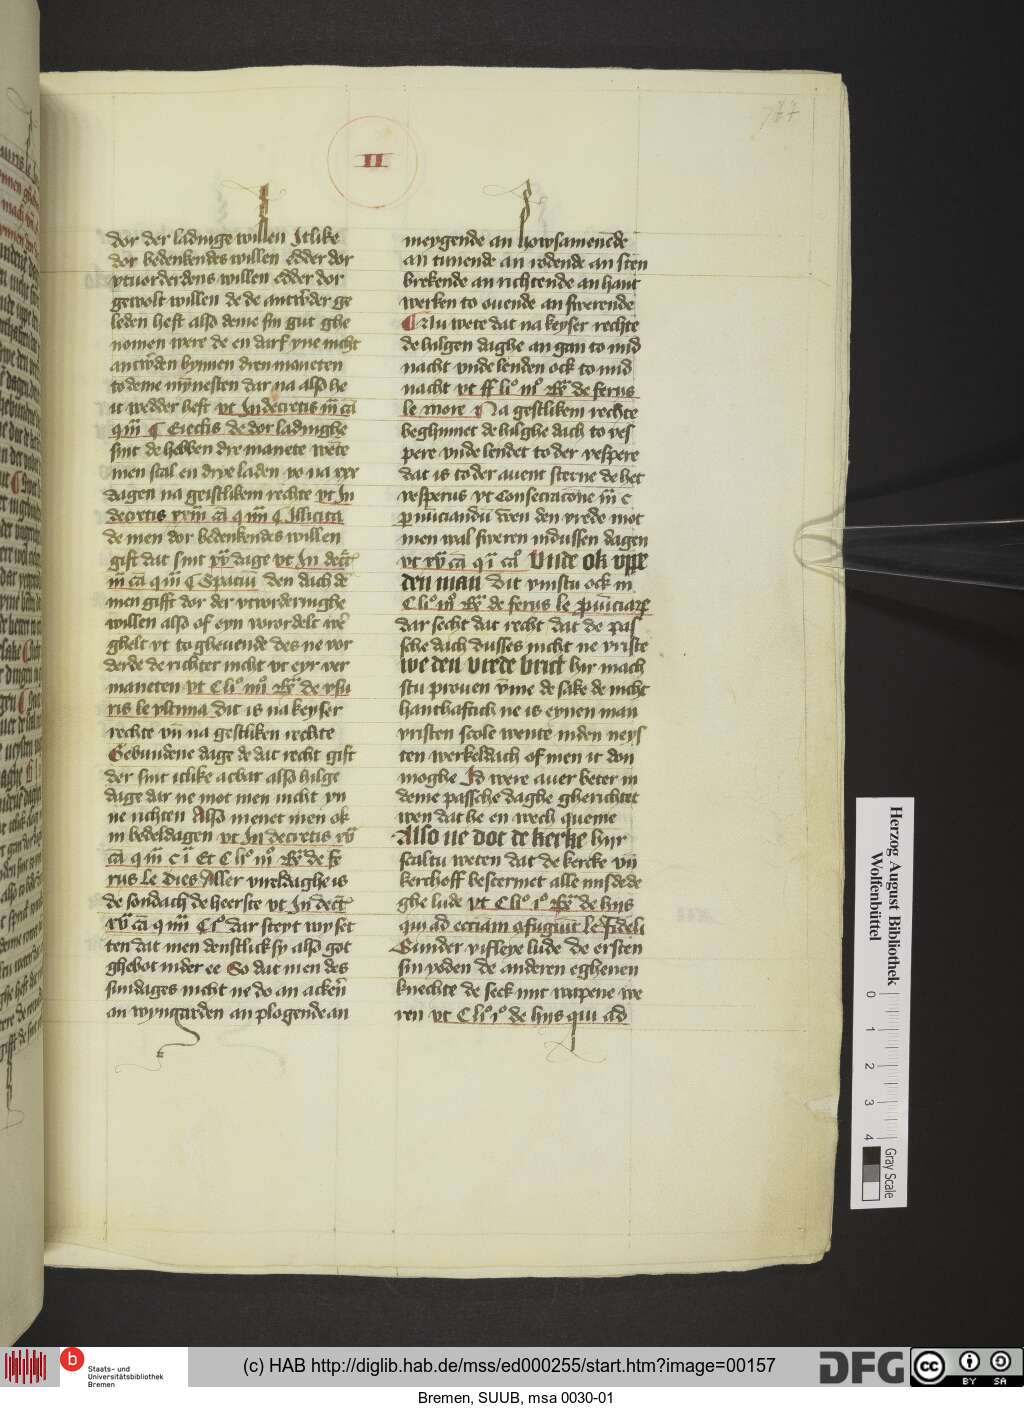 II
dor der ladinge willen Jtlike
dor bedenkendes willen edder dor
vtuorderdens willen edder dor
gewolt willen de de antw̄der ge
leden heft also deme sin gut ghe
nomen were de en darf yne nicht
antw̄den bynnen dren maneten
to deme mȳnesten dar na also he
it wedder heft vt Jn decretis iij cā
q iij ¶ Eiectis de dor ladinghe
sint de hebben dre manete wēte
men scal en drye laden yo na xxx
dagen na geistlikem rechte vt Jn
decretis
de men dor bedenkendes willen
gift dat sint xx dage vt Jn decr̄
Spaciū den dach de
men gifft dor der vtvorderinghe
willen also of eyn vorordelt we
ghelt vt to gheuende des ne vor
derde de richter nicht vt eyr ver
maneten vt C li° de vsu
ris le vltima dit is na keyser
rechte vn̄ na gestliken rechte
Gebundene dage de dat recht gift
der sint itlike acbar also hilge
dage dar ne mot men nicht yn
ne richten Also menet men ok
in bededagen vt Jn decretis xv
cā q iij c i Et C li° iij° de fe
rus le Dies Aller vireldaghe is
de sondach de heerste vt Jn decr̄
xv cā q iiij dar steyt wyset
ten dat men denstlick sy also got
ghebot in der ee So dat men des
sundages nicht ne do an ackerī
an wyngarden an plogende an
meygende an howsamenēde
an tunende an rodende an sten
brekende an richtende an hant
werken to ouende an swerende
¶ Nu wete dat na keyser rechte
de hilgen daghe an gan to mid
nacht vnde lenden ock to mid
nacht vt ff li° de ferus
le more Na gestlikem rechte
beghinnet de hilghe dach to ves
pere vnde lendet to der vespere
dat is to der auent sterne de het
vesperus vt Consecracōne iij c
pnūciandū den vrede mot
men wal sweren in dussen dagen
vt xv cā q i Vnde ok vppe
den man dit vinstu ock in
C li° iij° de ferus le
dar secht dat recht dat de pas
sche dach dusses nicht ne vriste
we den vrede brict hir mach
stu prouen vm̄e de sake de nicht
hanthaftich ne is eynen man
vristen scole wente in den neys
ten werkeldach of men it don
moghe Jd were auer beter in
deme passche daghe gherichtet
wen dat he en wech queme
Also ne dot de kerke hijr
scaltu weten dat de kercke vn̄
kerchoff beschermet alle misdede
ghe lude vt C li° i° de hijs
qui ad eccl̄iam ɔfugiūt le Fideli
Sunder vifleye lude de ersten
sin yoden de anderen eghenen
knechte de seck mit wapene we
ren vt C li° i° de hijs qui ad
Herzog August Bibliothek
Wolfenbüttel
0 1 2 3 4
Gray Scale
b
Staats- und
Universitätsbibliothek
Bremen
(c) HAB http://diglib.hab.de/mss/ed000255/start.htm?image=00157
DFG
cc
BY SA
Bremen, SUUB, msa 0030-01